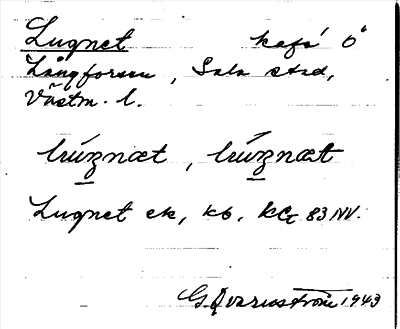 Lugnet kafé Ö
Långforsen, Sala stad,
Västm. l.
Lugnet ek, kb. 83 NV.
G. Qvarnström 1943